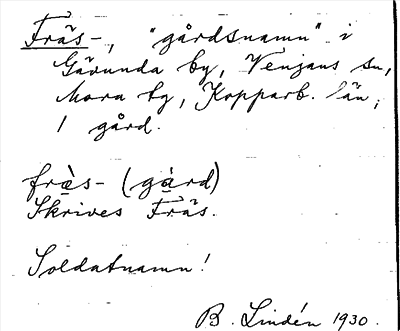 Fräs-, "gårdsnamn" i
Gävunda by, Venjans sn,
Mora tg, Kopparb. län;
1 gård.
frä̀s- (gàrd)
Skrives Fräs.
Soldatnamn!
B. Lindén 1930.